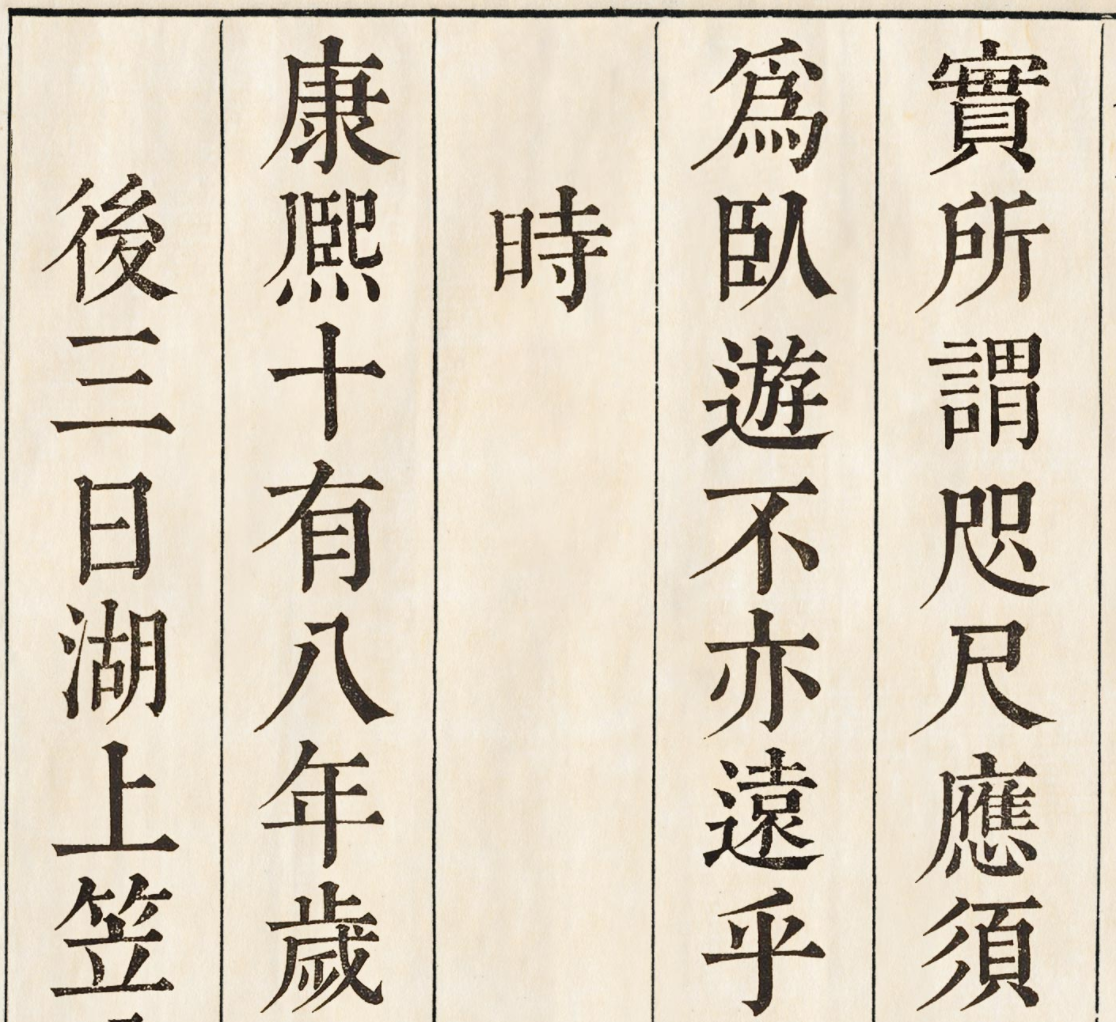 實所謂咫尺應須
爲臥遊不亦遠乎
時
康熙十有八年歲
後三日湖上笠